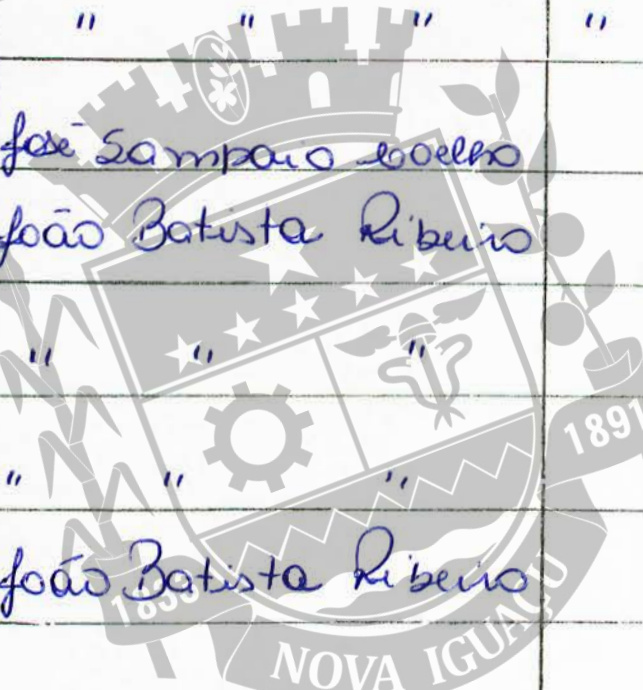 " " " "
José Sampaio Coelho
João Batista Ribeiro
" " "
1891
" " "
João Batista Ribeiro
1833
NOVA IGUAÇU